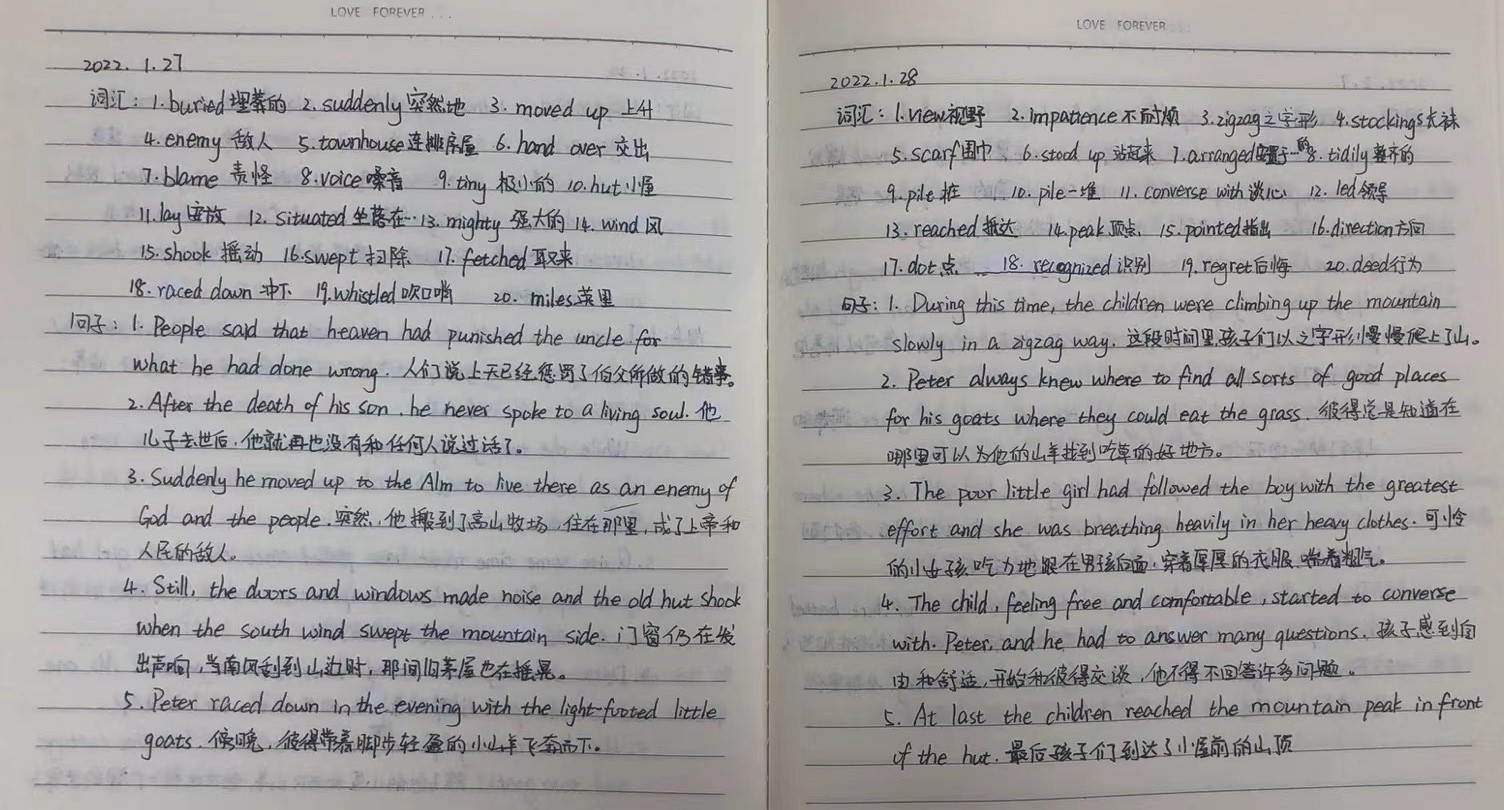 LOVE FOREVER...
2022.1.27
词汇：1.buried埋葬的 2.suddenly突然地 3.moved up 上升
4.enemy 敌人 5.townhouse连排房屋 6.hand over 交出
7.blame 责怪 8.voice嗓音 9.tiny 极小的 10.hut小屋
11.lay安放 12.situated坐落在… 13.mighty 强大的 14.wind风
15.shook 摇动 16.swept 扫除 17.fetched取来
18.raced down 冲下 19.whistled吹口哨 20.miles英里
句子：1.People said that heaven had punished the uncle for
what he had done wrong. 人们说上天已经惩罚了伯父所做的错事。
2.After the death of his son, he never spoke to a living soul. 他
儿子去世后，他就再也没有和任何人说过话了。
3.Suddenly he moved up to the Alm to live there as an enemy of
God and the people. 突然，他搬到了高山牧场，住在那里，成了上帝和
人民的敌人。
4.Still, the doors and windows made noise and the old hut shook
when the south wind swept the mountain side. 门窗仍在发
出声响，当南风刮到山边时，那间旧茅屋也在摇晃。
5.Peter raced down in the evening with the light-footed little
goats. 傍晚，彼得带着脚步轻盈的小山羊飞奔而下。
LOVE FOREVER...
2022.1.28
词汇：1.view视野 2.impatience不耐烦 3.zigzag之字形 4.stockings长袜
5.scarf围巾 6.stood up 站起来 7.arranged安置于…的 8.tidily整齐的
9.pile 桩 10.pile一堆 11.converse with谈心 12.led领导
13.reached 抵达 14.peak顶点 15.pointed指出 16.direction方向
17.dot点 18.recognized识别 19.regret后悔 20.deed行为
句子：1.During this time, the children were climbing up the mountain
slowly in a zigzag way. 这段时间里，孩子们以之字形慢慢爬上了山。
2.Peter always knew where to find all sorts of good places
for his goats where they could eat the grass. 彼得总是知道在
哪里可以为他的山羊找到吃草的好地方。
3.The poor little girl had followed the boy with the greatest
effort and she was breathing heavily in her heavy clothes. 可怜
的小女孩吃力地跟在男孩后面，穿着厚厚的衣服，喘着粗气。
4.The child, feeling free and comfortable, started to converse
with Peter, and he had to answer many questions. 孩子感到自
由和舒适，开始和彼得交谈，他不得不回答许多问题。
5.At last the children reached the mountain peak in front
of the hut. 最后孩子们到达了小屋前的山顶